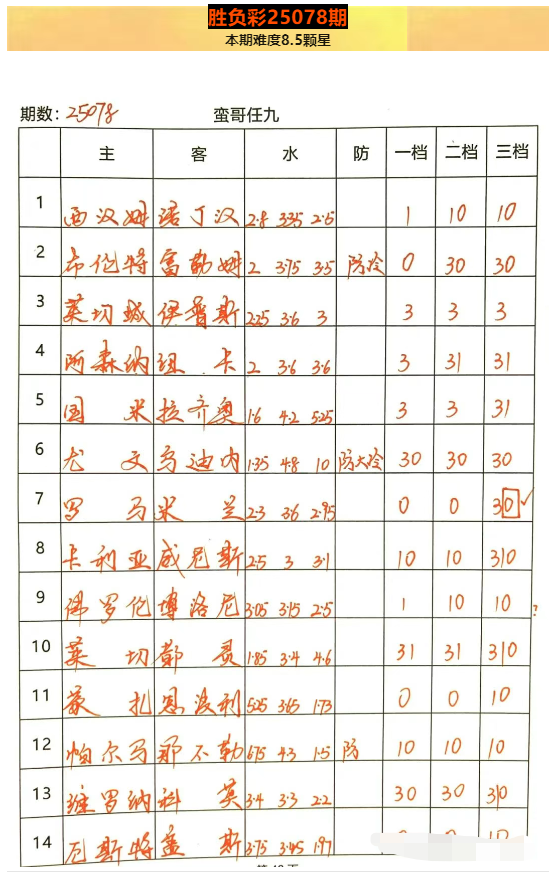 胜负彩25078期
本期难度8.5颗星
期数: 25078 蛮哥任九
主 客 水 防 一档 二档 三档
1 西汉姆 诺丁汉 2.8 3.35 2.5 1 10 10
2 布伦特 富勒姆 2 3.75 3.5 防冷 0 30 30
3 莱切城 伊普斯 2.25 3.6 3 3 3 3
4 阿森纳 纽卡 2 3.6 3.6 3 31 31
5 国米 拉齐奥 1.6 4.2 5.25 3 3 31
6 尤文 乌迪内 1.35 4.8 10 防大冷 30 30 30
7 罗马 米兰 2.3 3.6 2.95 0 0 30 ✓
8 卡利亚 威尼斯 2.5 3 3.1 10 10 310
9 佛罗伦 博洛尼 3.05 3.15 2.5 1 10 10 ?
10 莱切 都灵 1.85 3.4 4.6 31 31 310
11 蒙扎 恩波利 5.25 3.65 1.73 0 0 10
12 帕尔马 那不勒 6.75 4.3 1.5 防 10 10 10
13 维罗纳 科莫 3.4 3.3 2.2 30 30 310
14 厄斯特 盖斯 3.75 3.45 1.97